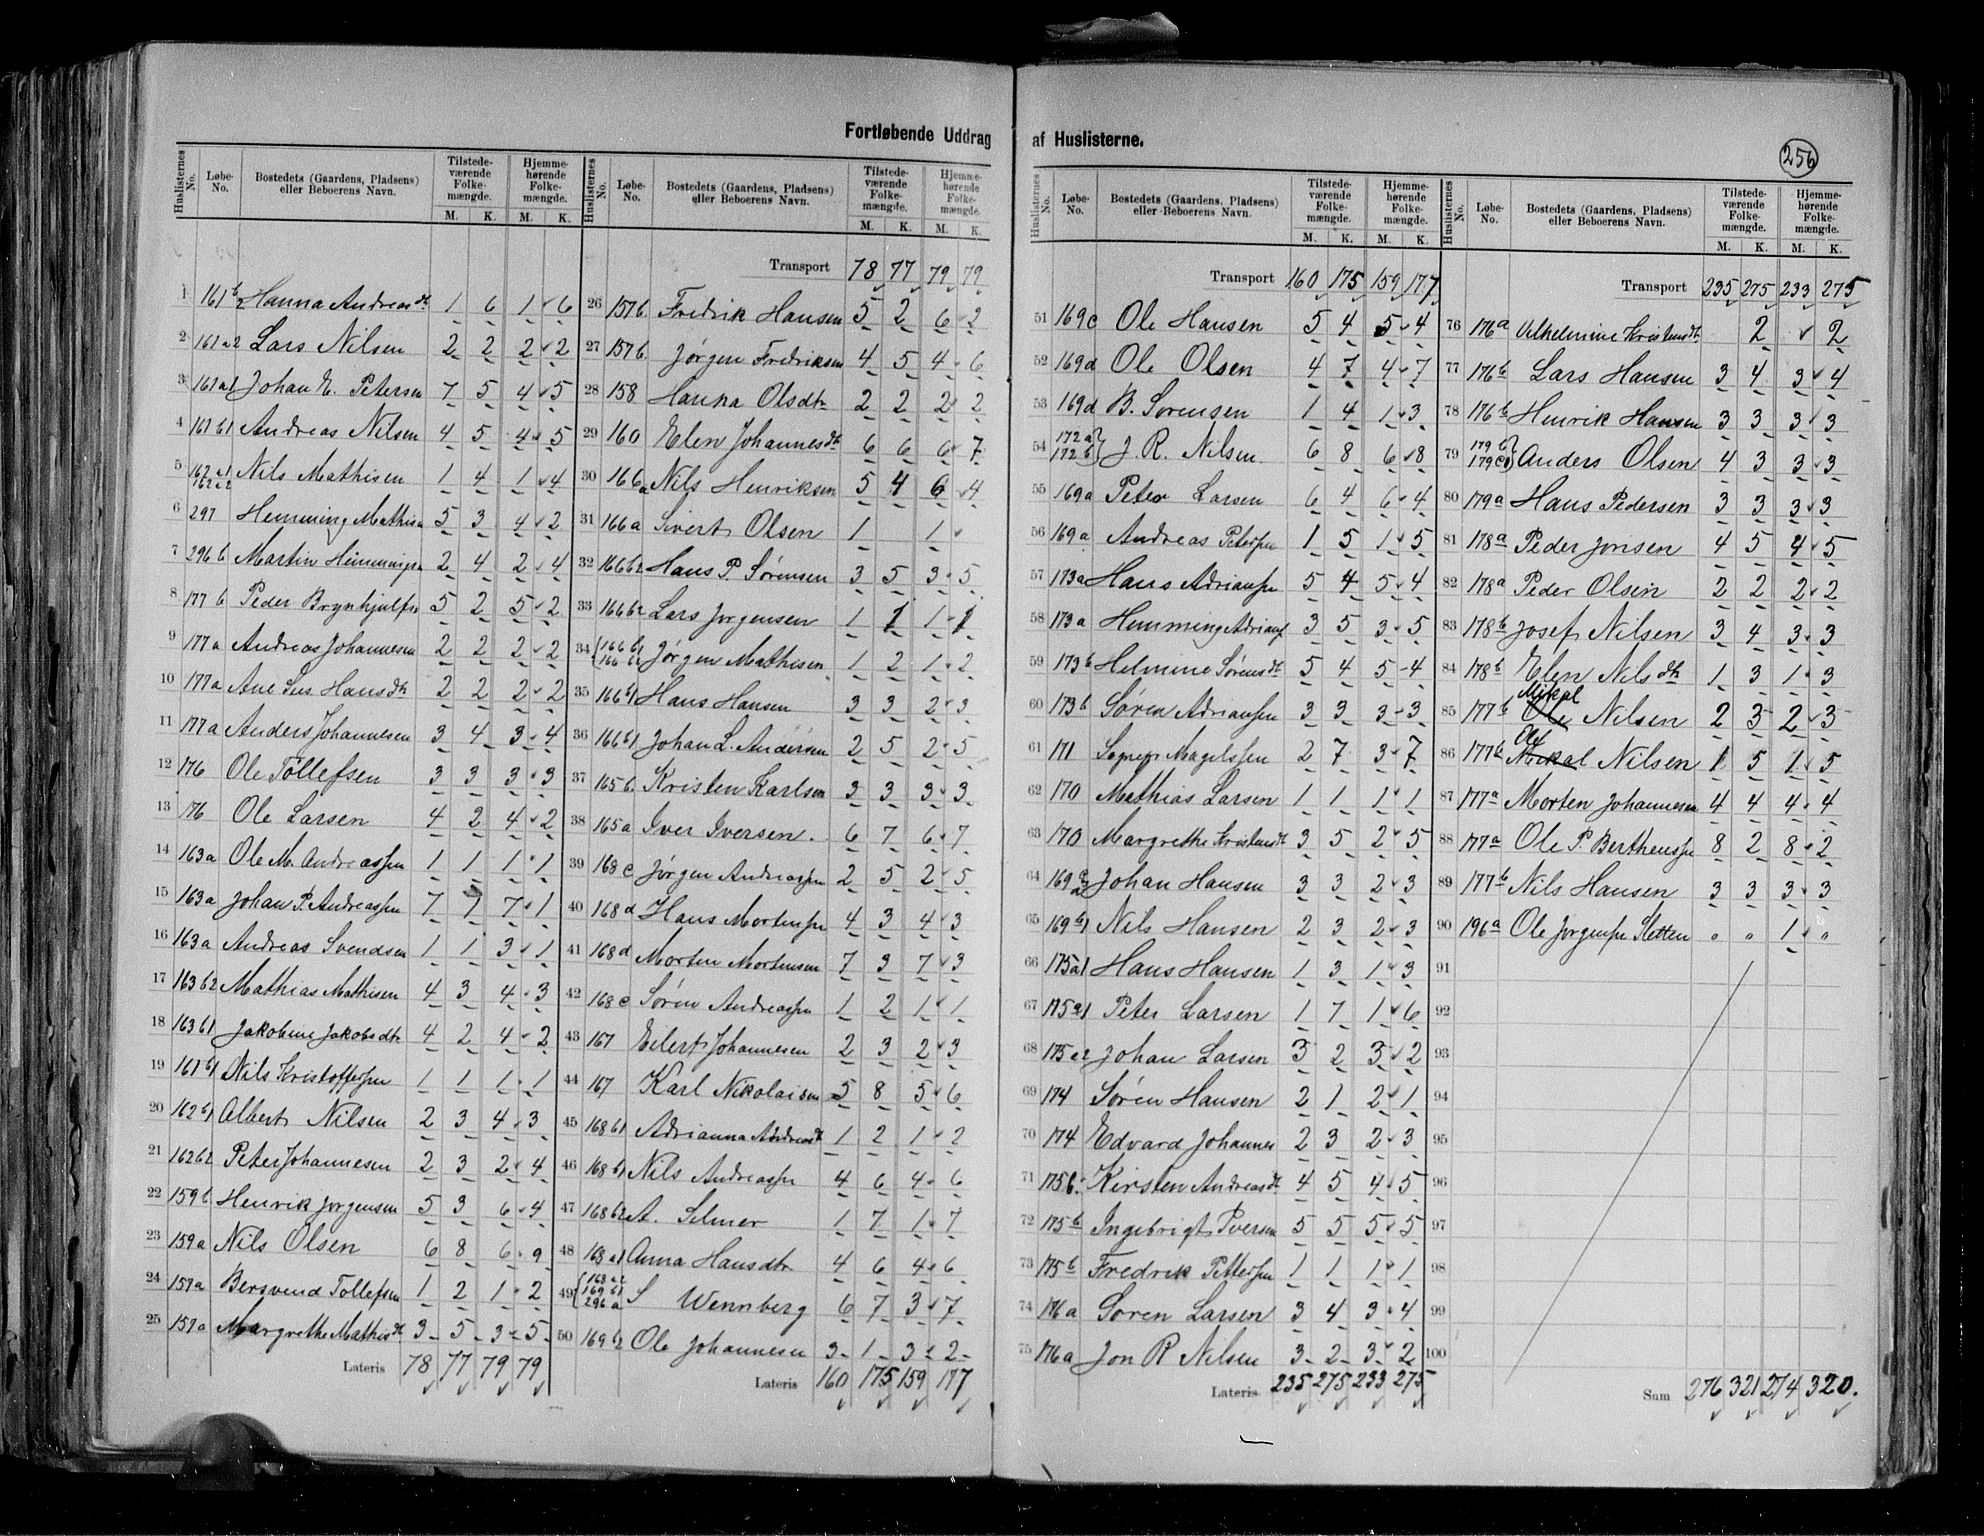 Fortløbende Uddrag af Huslisterne.
256
Huslisternes No. Løbe-No. Bostedets (Gaardens, Pladsens) eller Beboerens Navn. Tilstedeværende Folkemængde. M. K. Hjemmehørende Folkemængde. M. K.
1 161 b2 Hanna Andreasdtr 1 6 1 6
2 161 a2 Lars Nilsen 2 2 2 2
3 161a1 Johan E. Petersen 7 5 4 5
4 161 b1 Andreas Nilsen 4 5 4 5
5 162 a1 162 a2 Nils Mathisen 1 4 1 4
6 297 Hemming Mathisn 5 3 4 2
7 296 b Martin Hemmingsn 2 4 2 4
8 177 b Peder Brynhjulfsn 5 2 5 2
9 177a Andreas Johannesen 2 2 2 2
10 177a Ane Sus Hansdtr 2 2 2 2
11 177a Anders Johannesen 3 4 3 4
12 176 Ole Tollefsen 3 3 3 3
13 176 Ole Larsen 4 2 4 2
14 163a Ole M. Andreassen 1 1 1 1
15 163a Johan P. Andreassen 7 1 7 1
16 163a Andreas Svendsen 1 1 3 1
17 163 b2 Mathias Mathisen 4 3 4 3
18 163 b1 Jakobine Jakobsdtr 4 2 4 2
19 161 b1 Nils Kristoffersen 1 1 1 1
20 162 b1 Albert Nilsen 2 3 4 3
21 162 b2 Peter Johannesen 2 3 2 4
22 159 b Henrik Jørgensen 5 3 6 4
23 159a Nils Olsen 6 8 6 9
24 157a Bersvend Tollefsen 1 2 1 2
25 157a Margrethe Mathisdtr 3 5 3 5
Lateris 78 77 79 79
Huslisternes No. Løbe-No. Bostedets (Gaardens, Pladsens) eller Beboerens Navn. Tilstedeværende Folkemængde. M. K. Hjemmehørende Folkemængde. M. K.
Transport 78 77 79 79
26 157 b. Fredrik Hansen 5 2 6 2
27 157 b. Jørgen Fredriksen 4 5 4 6
28 158 Hanna Olsdtr 2 2 2 2
29 160 Elen Johannesdtr 6 6 6 7
30 166a Nils Henriksen 5 4 6 4
31 166a Sivert Olsen 1 1
32 166 b2 Hans P. Sørensen 3 5 3 5
33 166 b2 Lars Jørgensen 1 1 1 1
34 166 b1 166 b2 Jørgen Mathisen 1 2 1 2
35 166 b1 Hans Hansen 3 3 2 3
36 166 b1 Johan L. Andersen 2 5 2 5
37 165 b. Kristen Karlsen 3 3 3 3
38 165a Iver Iversen. 6 7 6 7
39 168 c Jørgen Andreassen 2 5 2 5
40 168 d Hans Mortensen 4 3 4 3
41 168d Morten Mortensen 7 3 7 3
42 168 c Sørin Andreassen 1 2 1 1
43 167 Eilert Johannesen 2 3 2 3
44 167 Karl Nikolaisen 5 8 5 6
45 168 b1 Adrianna Andreasdtr 1 2 1 2
46 168 b1 Nils Andreassen 4 6 4 6
47 168 b2 A. Selmer 1 7 1 7
48 168 a1 Anna Hansdtr 4 6 4 6
49 168 a2 169 b1 296 a S Wennberg 6 7 3 7
50 169 b2 Ole Johannesen 3 1 3 2
Lateris 160 175 159 177
Huslisternes No. Løbe-No. Bostedets (Gaardens, Pladsens) eller Beboerens Navn. Tilstedeværende Folkemængde. M. K. Hjemmehørende Folkemængde. M. K.
Transport 160 175 159 177
51 169c Ole Hansen 5 4 5 4
52 169d Ole Olsen 4 7 4 7
53 169d B. Sørensen 1 4 1 3
54 172 a 172 b J. R. Nilsen. 6 8 6 8
55 169a Peter Larsen 6 4 6 4
56 169a Andreas Petersen 1 5 1 5
57 173a Hans Adriansen 5 4 5 4
58 173a Hemming Adrians 3 5 3 5
59 173b Helmine Sørensdtr 5 4 5 4
60 173b Søren Adriansen 3 3 3 3
61 171 Magelssen 2 7 3 7
62 170 Mathias Larsen 1 1 1 1
63 170 Margrethe Kristensdtr 3 5 2 5
64 169 Johan Hansen 3 3 2 3
65 169 b1 Nils Hansen 2 3 2 3
66 175a1 Hans Hansen 1 3 1 3
67 175a1 Peter Larsen 1 7 1 6
68 175a2 Johan Larsen 3 2 3 2
69 174 Søren Hansen 2 1 2 1
70 174 Edvard Johannes 2 3 2 3
71 175b. Kirsten Andreasdtr 4 5 4 5
72 175b Ingebrigt Iversen 5 5 5 5
73 175b Fredrik Pettersen 1 1 1 1
74 176a Søren Larsen 3 4 3 4
75 176a Jon R Nilsen 3 2 3 2
Lateris 235 275 233 275
Huslisternes No. Løbe-No. Bostedets (Gaardens, Pladsens) eller Beboerens Navn. Tilstedeværende Folkemængde. M. K. Hjemmehørende Folkemængde. M. K.
Transport 235 275 233 275
76 176a Vilhelmine Kristensdtr 2 2
77 176b Lars Hansen 3 4 3 4
78 176b Henrik Hansen 3 3 3 3
79 179 b 179 c Anders Olsen 4 3 3 3
80 179a Hans Pedersen 3 3 3 3
81 178a Peder Jonsen 4 5 4 5
82 178a Peder Olsen 2 2 2 2
83 178b Josef Nilsen 3 4 3 3
84 178b Elen Nilsdtr 1 3 1 3
85 177b Ole Mikal Nilsen 2 3 2 3
86 177b Mikal Ole Nilsen 1 5 1 5
87 177a Morten Johannesen 4 4 4 4
88 177a Ole P. Berthenssen 8 2 8 2
89 177b Nils Hansen 3 3 3 3
90 196a Ole Jørgensen Sletten " " 1 "
91
92
93
94
95
96
97
98
99
100
Sum 276 321 274 320.